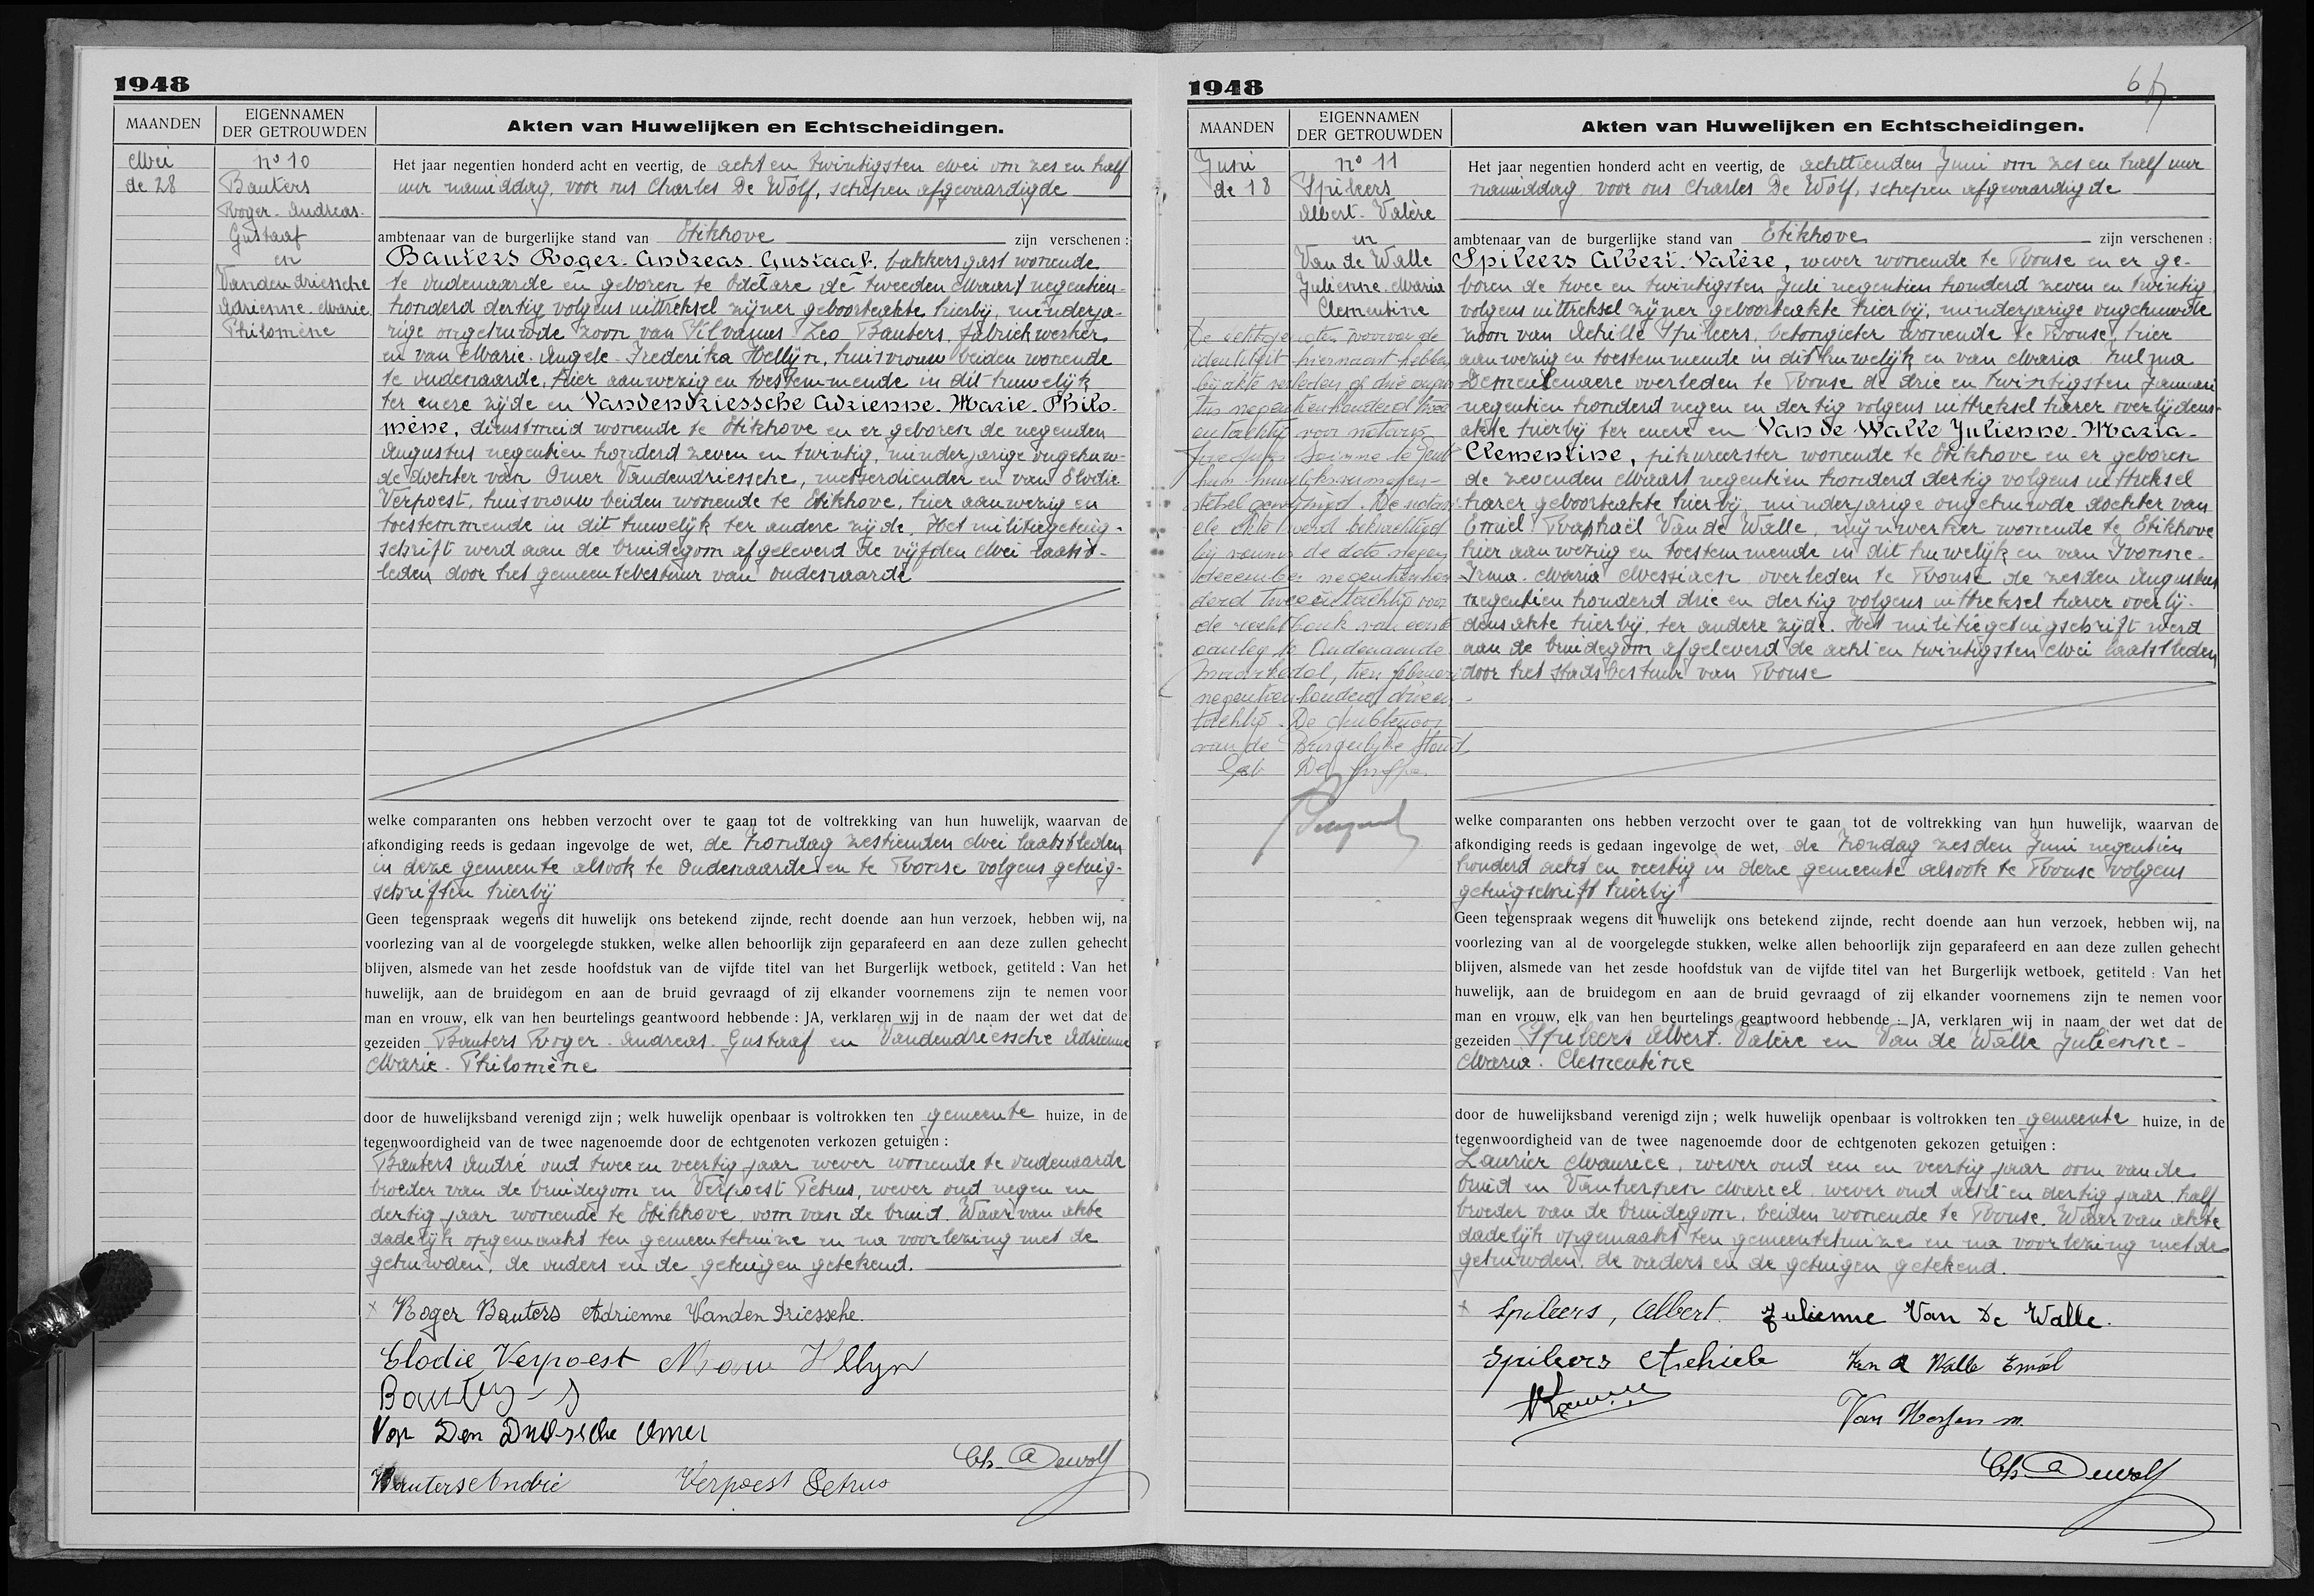 1948
MAANDEN
EIGENNAMEN
DER GETROUWDEN
Akten van Huwelijken en Echtscheidingen.
Mei
de 28
nº 10
Bauters
Roger-Andreas-
Gustaaf
en
Vandendriessche
Adrienne-Marie
Philomène
Het jaar negentien honderd acht en veertig, de acht en twintigsten Mei om zes en half
uur namiddag, voor ons Charles De Wolf, schepen afgevaardigde
ambtenaar van de burgerlijke stand van Etikhove zijn verschenen :
Bauters Roger-Andreas-Gustaaf, bakkersgast wonende
te Oudenaarde en geboren te Edelare de tweeden Maart negentien-
honderd dertig volgens uittreksel zijner geboorteakte hierbij, minderja-
rige ongehuwde zoon van Silvanus Leo Bauters, fabriekwerker
en van Marie-Angele-Frederika Hellijn, huisvrouw beiden wonende
te Oudenaarde, hier aanwezig en toestemmende in dit huwelijk
ter eenre zijde en Vandendriessche Adrienne-Marie-Philo-
mène, dienstmeid wonende te Etikhove en er geboren de negenden
Augustus negentien honderd zeven en twintig, minderjarige ongehuw-
de dochter van Omer Vandendriessche, metserdiender en van Elodie
Verpoest, huisvrouw beiden wonende te Etikhove, hier aanwezig en
toestemmende in dit huwelijk ter andere zijde. Het militiegetuig-
schrift werd aan de bruidegom afgeleverd de vijfden Mei laatst-
leden door het gemeentebestuur van Oudenaarde
welke comparanten ons hebben verzocht over te gaan tot de voltrekking van hun huwelijk, waarvan de
afkondiging reeds is gedaan ingevolge de wet, de Zondag zestienden Mei laatstleden
in deze gemeente alsook te Oudenaarde en te Ronse volgens getuig-
schriften hierbij
Geen tegenspraak wegens dit huwelijk ons betekend zijnde, recht doende aan hun verzoek, hebben wij, na
voorlezing van al de voorgelegde stukken, welke allen behoorlijk zijn geparafeerd en aan deze zullen gehecht
blijven, alsmede van het zesde hoofdstuk van de vijfde titel van het Burgerlijk wetboek, getiteld : Van het
huwelijk, aan de bruidegom en aan de bruid gevraagd of zij elkander voornemens zijn te nemen voor
man en vrouw, elk van hen beurtelings geantwoord hebbende : JA, verklaren wij in de naam der wet dat de
gezeiden Bauters Roger-Andreas-Gustaaf en Vandendriessche Adrienne
Marie-Philomène
door de huwelijksband verenigd zijn ; welk huwelijk openbaar is voltrokken ten gemeente huize, in de
tegenwoordigheid van de twee nagenoemde door de echtgenoten verkozen getuigen :
Bauters André oud twee en veertig jaar wever wonende te Oudenaarde
broeder van de bruidegom en Verpoest Petrus, wever oud negen en
dertig jaar wonende te Etikhove, oom van de bruid. Waarvan akte
dadelijk opgemaakt ten gemeentehuize en na voorlezing met de
gehuwden, de ouders en de getuigen getekend.
x Roger Bauters Adrienne Vanden Driessche.
Elodie Verpoest Marie Hellyn
Bauters S
Van Den Driessche Omer
Ch. Dewolf
Bauters André Verpoest Petrus
1948
6
MAANDEN
EIGENNAMEN
DER GETROUWDEN
Akten van Huwelijken en Echtscheidingen.
Juni
de 18
nº 11
Spileers
Albert-Valère
en
Van de Walle
Julienne-Maria
Clementine
De echtgenoten waarvan de
identiteit hiernaast hebben
bij akte verleden op drie augus
tus negentienhonderd twee
en tachtig voor notaris
te Gent
hun huwelijksvermogen-
stelsel gewijzigd. De notari
ele akte werd bekrachtigd
bij vonnis de dato negen
december negentienhon
derd twee en tachtig voor
de rechtbank van eerste
aanleg te Oudenaarde
Maarkedal, tien februari
negentienhonderd drieën
tachtig. De ambtenaar
van de Burgerlijke Stand,
Het jaar negentien honderd acht en veertig, de achttienden Juni om zes en half uur
namiddag voor ons Charles De Wolf, schepen afgevaardigde
ambtenaar van de burgerlijke stand van Etikhove zijn verschenen :
Spileers Albert-Valère, wever wonende te Ronse en er ge-
boren de twee en twintigsten Juli negentien honderd zeven en twintig
volgens uittreksel zijner geboorteakte hierbij, minderjarige ongehuwde
zoon van Achille Spileers, betongieter wonende te Ronse, hier
aanwezig en toestemmende in dit huwelijk en van Maria Zulma
Demeulenaere overleden te Ronse de drie en twintigsten Januari
negentien honderd negen en dertig volgens uittreksel harer overlijdens-
akte hierbij ter eenre en Van de Walle Julienne-Maria-
Clementine, pikureerster wonende te Etikhove en er geboren
de zevenden Maart negentien honderd dertig volgens uittreksel
harer geboorteakte hierbij, minderjarige ongehuwde dochter van
Emiel Raphaël Van de Walle, mijnwerker wonende te Etikhove
hier aanwezig en toestemmende in dit huwelijk en van Ivonne-
Irma-Maria Messiaen overleden te Ronse de zesden Augustus
negentien honderd drie en dertig volgens uittreksel harer overlij-
densakte hierbij, ter andere zijde. Het militiegetuigschrift werd
aan de bruidegom afgeleverd de acht en twintigsten Mei laatstleden
door het stadsbestuur van Ronse
welke comparanten ons hebben verzocht over te gaan tot de voltrekking van hun huwelijk, waarvan de
afkondiging reeds is gedaan ingevolge de wet, de Zondag zesden Juni negentien
honderd acht en veertig in deze gemeente alsook te Ronse volgens
getuigschrift hierbij
Geen tegenspraak wegens dit huwelijk ons betekend zijnde, recht doende aan hun verzoek, hebben wij, na
voorlezing van al de voorgelegde stukken, welke allen behoorlijk zijn geparafeerd en aan deze zullen gehecht
blijven, alsmede van het zesde hoofdstuk van de vijfde titel van het Burgerlijk wetboek, getiteld : Van het
huwelijk, aan de bruidegom en aan de bruid gevraagd of zij elkander voornemens zijn te nemen voor
man en vrouw, elk van hen beurtelings geantwoord hebbende : JA, verklaren wij in de naam der wet dat de
gezeiden Spileers Albert-Valère en Van de Walle Julienne-
Maria-Clementine
door de huwelijksband verenigd zijn ; welk huwelijk openbaar is voltrokken ten gemeente huize, in de
tegenwoordigheid van de twee nagenoemde door de echtgenoten gekozen getuigen :
Laurier Maurice, wever oud een en veertig jaar oom van de
bruid en Vanherpen Marcel, wever oud acht en dertig jaar, half
broeder van de bruidegom, beiden wonende te Ronse. Waarvan akte
dadelijk opgemaakt ten gemeentehuize en na voorlezing met de
gehuwden, de vaders en de getuigen getekend.
x Spileers, Albert. Julienne Van De Walle.
Spileers Achiele Van de Walle Emiel
Van Herpen M.
Ch. Dewolf